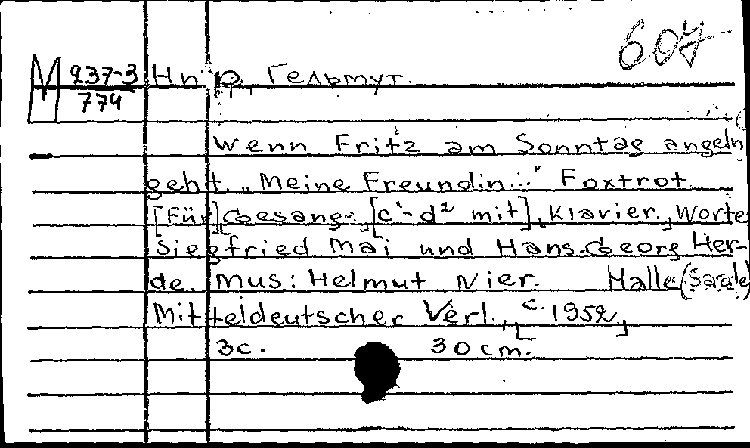 607
М 237-3
774
Нир, Гельмут.
Wenn Fritz am Sonntag angeln
geht „Meine Freundin..." Foxtrot
[Für] Gesang [c'-d² mit], Klavier., Worte
Siegfried Mai und Hans-Georg Her-
de. Mus: Helmut Nier. Halle (Saale)
Mitteldeutscher Verl., [c. 1952]
3c. 30cm.